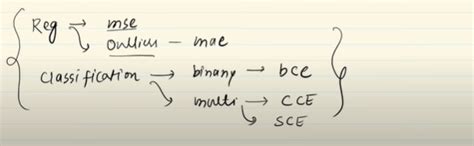 Reg → mse
↘ Outliers – mae
Classification → binary → bce
↘ multi → CCE
↘ SCE